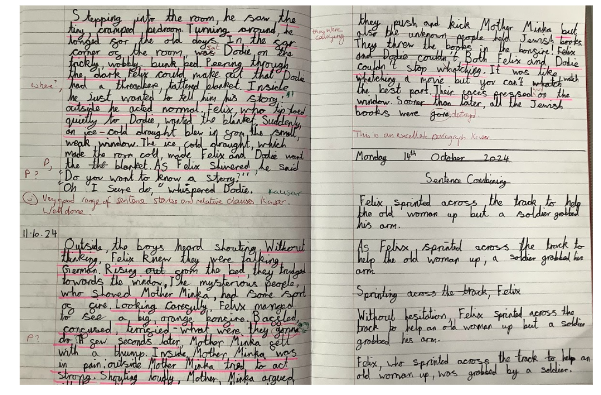 Stepping into the room, he saw the
tiny cramped bedroom. Turning around, he
longed for the old days. In the far
corner of the room was Dodie, on the
rickly, wobbly bunk bed. Peering through
the dark Felix could make out that Dodie
had a threadbare, tattered blanket. Inside,
he just wanted to tell him his story.
outside he acted normal. Felix who
quietly to Dodie, wanted the blanket. Suddenly,
an ice-cold draught blew in from the small,
weak window. The ice cold draught, which
made the room cold, made Felix and Dodie want
the blanket. As Felix shivered, he said
P?
"Do you want to know a story?"
"Oh I sure do," whispered Dodie.
Very good range of sentence starters and relative clauses
Well done
11.10.24
Outside, the boys heard shouting. Without
thinking, Felix knew they were talking
German. Rising out from the bed, they trudged
towards the window. The mysterious people,
who shoved Mother Minka, had some sort
of cure. Looking carefully, Felix managed
to see a big orange bonsire. Baffled,
concused, terrified - what were they gonna
P?
do. A few seconds later, Mother Minka fell
with a thump. Inside, Mother Minka was
in pain. outside Mother Minka tried to act
strong. Shouting loudly, Mother Minka argued
they push and kick Mother Minka but
also the unknown people had Jewish books
They threw the books in the bonsire! Felix
and Dodie couldn't. Both Felix and Dodie
couldn't stop whatching. It was like
whatching a movie but you can't
the best part. Their faces pressed on the
window. Sooner than later, all the Jewish
books were gone.
This is an excellent paragraph
Monday 14th October 2024
Sentence Combining
Felix sprinted across the track to help
the old woman up but a soldier grabbed
his arm.
As Felix sprinted across the track to
help the old woman up, a soldier grabbed his
arm
Sprinting across the track, Felix
Without hesitation, Felix sprinted across the
track to help an old woman up but a soldier
grabbed his arm.
Felix, who sprinted across the track to help an
old woman up, was grabbed by a soldier.